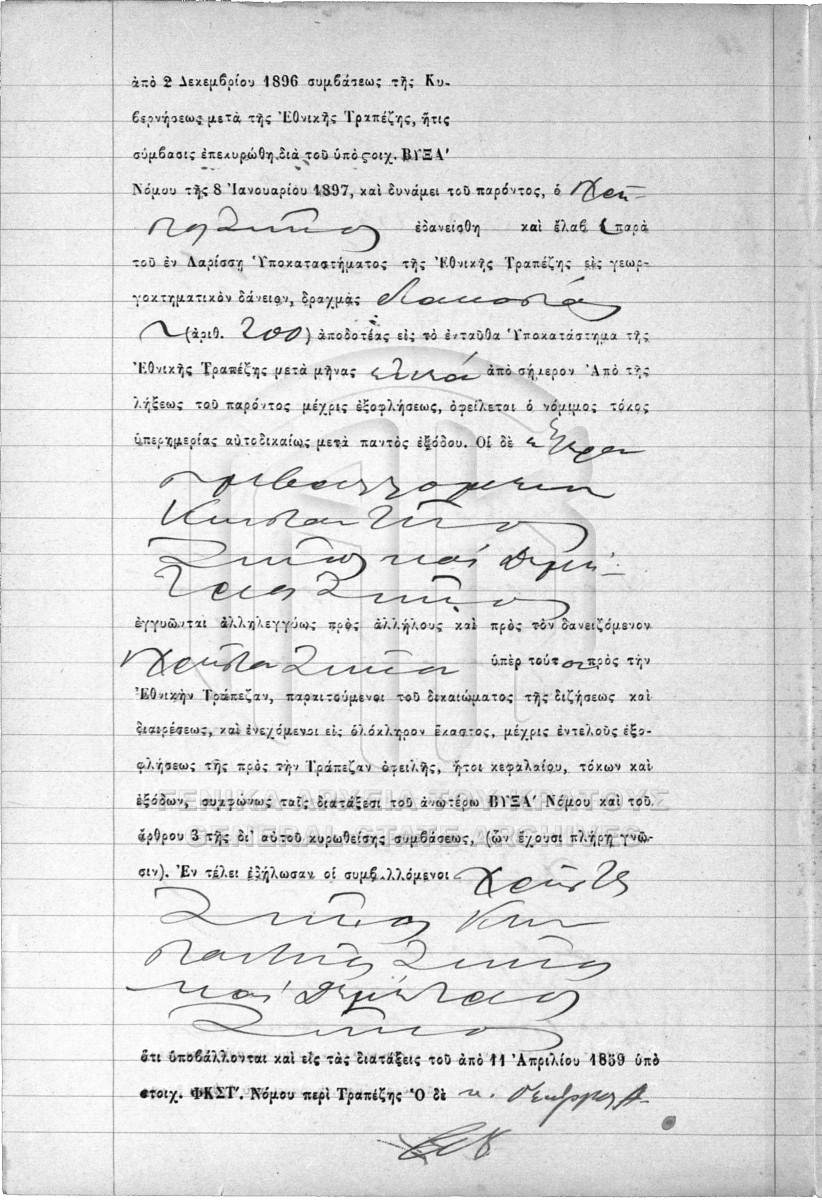 ἀπὸ 2 Δεκεμβρίου 1896 συμβάσεως τῆς Κυ-
βερνήσεως μετὰ τῆς Ἐθνικῆς Τραπέζης, ἥτις
σύμβασις ἐπεκυρώθη διὰ τοῦ ὑπὸ στοιχ. ΒΥΞΑ′
Νόμου τῆς 8 Ἰανουαρίου 1897, καὶ δυνάμει τοῦ παρόντος, ὁ Χρῆ-
ἐδανείσθη καὶ ἔλαβε παρὰ
τοῦ ἐν Λαρίσσῃ Ὑποκαταστήματος τῆς Ἐθνικῆς Τραπέζης εἰς γεωρ-
γοκτηματικὸν δάνειον, δραχμὰς διακοσίας
(ἀριθ. 200) ἀποδοτέας εἰς τὸ ἐνταῦθα Ὑποκατάστημα τῆς
Ἐθνικῆς Τραπέζης μετὰ μῆνας ἐννέα ἀπὸ σήμερον Ἀπὸ τῆς
λήξεως τοῦ παρόντος μέχρις ἐξοφλήσεως, ὀφείλεται ὁ νόμιμος τόκος
ὑπερημερίας αὐτοδικαίως μετὰ παντὸς ἐξόδου. Οἱ δὲ
Κωνσταντῖνος
καὶ Δημή-
τριος
ἐγγυῶνται ἀλληλεγγύως πρὸς ἀλλήλους καὶ πρὸς τὸν δανειζόμενον
Χρῆστον ὑπὲρ τούτου πρὸς τὴν
Ἐθνικὴν Τράπεζαν, παραιτούμενοι τοῦ δικαιώματος τῆς διζήσεως καὶ
διαιρέσεως, καὶ ἐνεχόμενοι εἰς ὁλόκληρον ἕκαστος, μέχρις ἐντελοῦς ἐξο-
φλήσεως τῆς πρὸς τὴν Τράπεζαν ὀφειλῆς, ἤτοι κεφαλαίου, τόκων καὶ
ἐξόδων, συμφώνως ταῖς διατάξεσι τοῦ ἀνωτέρω ΒΥΞΑ′ Νόμου καὶ τοῦ
ΓΕΝΙΚΑ ΑΡΧΕΙΑ ΤΟΥ ΚΡΑΤΟΥΣ
ἄρθρου 3 τῆς δι' αὐτοῦ κυρωθείσης συμβάσεως, (ὧν ἔχουσι πλήρη γνῶ-
GENERAL STATE ARCHIVES
σιν). Ἐν τέλει ἐδήλωσαν οἱ συμβαλλόμενοι Χρῆστος
Κων-
σταντῖνος
καὶ Δημήτριος
ὅτι ὑποβάλλονται καὶ εἰς τὰς διατάξεις τοῦ ἀπὸ 11 Ἀπριλίου 1859 ὑπὸ
στοιχ. ΦΚΣΤ′. Νόμου περὶ Τραπέζης Ὁ δὲ κ. Γεώργιος Α-